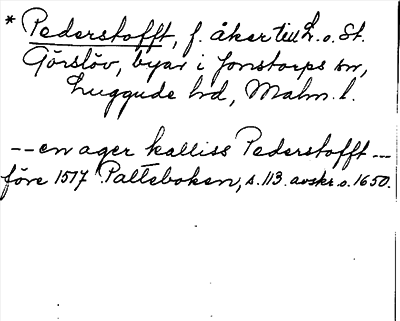 * Pederstofft, f. åker till L. o. St.
Görslöv, byar i Jonstorps sn,
Luggude hd, Malm. l.
-- en ager kalliss Pederstofft --
före 1517 Palteboken, s. 113. avskr. o. 1650.